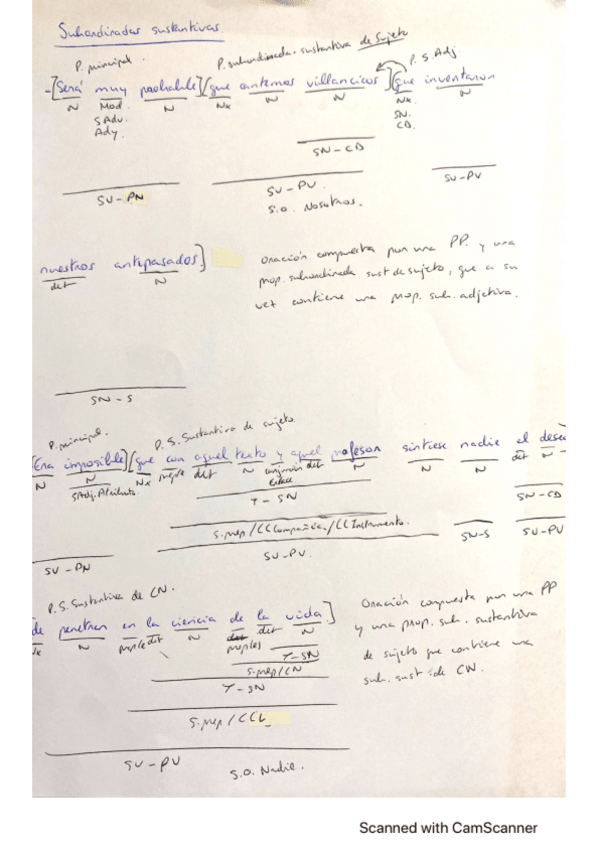 Subordinadas sustantivas
P. principal. P. subordinada sustantiva de Sujeto P. S. Adj
-[Será muy probable] [que cantemos villancicos [que inventaron
N Mod. N Nx N N Nx N
S Adv. SN.
Ady. CD.
SN-CD
SV-PN SV-PV SV-PV
S.O. Nosotros.
nuestros antepasados.]
det N
Oración compuesta por una PP. y una
prop. subordinada sust de sujeto, que a su
vez contiene una prop. sub. adjetiva.
SN-S
P. principal. P. S. Sustantiva de sujeto
[Era imposible] [que con aquel texto y aquel profesor sintiese nadie el dese
N N Nx det N det N N N det N
S Adj. Atributo enlace
T-SN SN-CD
S.prep/CC Compañía/CC Instrumento. SN-S SV-PV
SV-PN SV-PV.
P. S. Sustantiva de CN.
de penetrar en la ciencia de la vida.]
Nx N det N det N
T-SN
S.prep/CN
T-SN
S.prep/CCL
SV-PV S.O. Nadie.
Oración compuesta por una PP
y una prop. sub. sustantiva
de sujeto que contiene una
sub. sust de CN.
Scanned with CamScanner